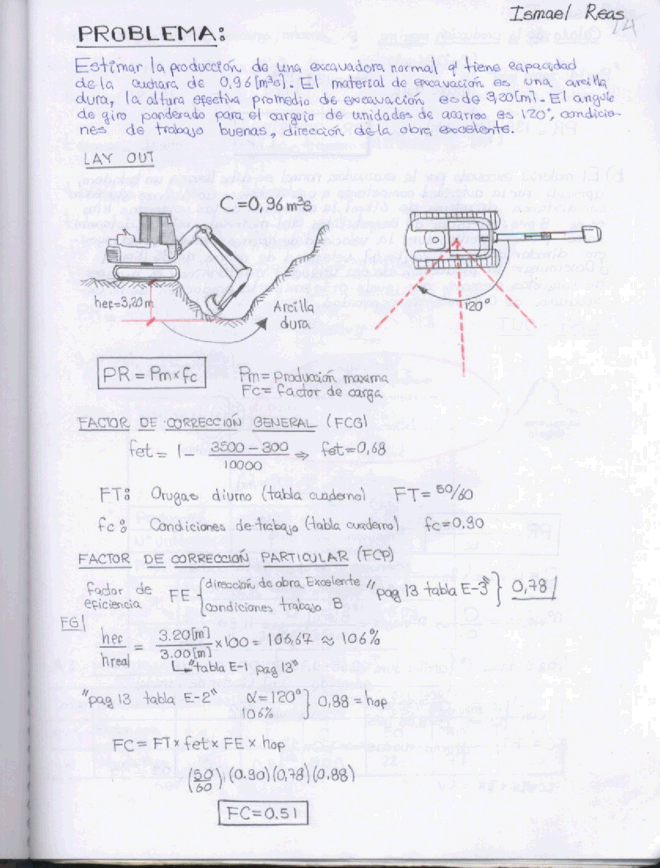 Ismael Reas
14
PROBLEMA:
Estimar la producción de una excavadora normal q' tiene capacidad
de la cuchara de 0,96 [m³s]. El material de excavación es una arcilla
dura, la altura efectiva promedio de excavación es de 3,20 [m]. El angulo
de giro ponderado para el carguio de unidades de acarreo es 120°, condicio-
nes de trabajo buenas, dirección de la obra excelente.
LAY OUT
C=0,96 m³s
hef=3,20 m
Arcilla
dura
120°
PR = Pm×fc
Pm= producción maxima
Fc= factor de carga
FACTOR DE CORRECCIÓN GENERAL (FCG)
fet = 1 - 3500-300/10000 ⇒ fet=0,68
FT: Orugas diurno (tabla cuaderno) FT= 50/60
fc: Condiciones de trabajo (tabla cuaderno) fc=0.90
FACTOR DE CORRECCIÓN PARTICULAR (FCP)
factor de eficiencia FE { dirección de obra Excelente
condiciones trabajo B "pag 13 tabla E-3" } 0,78
FG
hef/hreal = 3.20[m]/3.00[m] ×100 = 106,67 ≈ 106%
"tabla E-1 pag 13"
"pag 13 tabla E-2" α=120° 106% } 0,88 = hop
FC = FT × fet × FE × hop
(50/60)(0.90)(0,78)(0.88)
FC=0.51